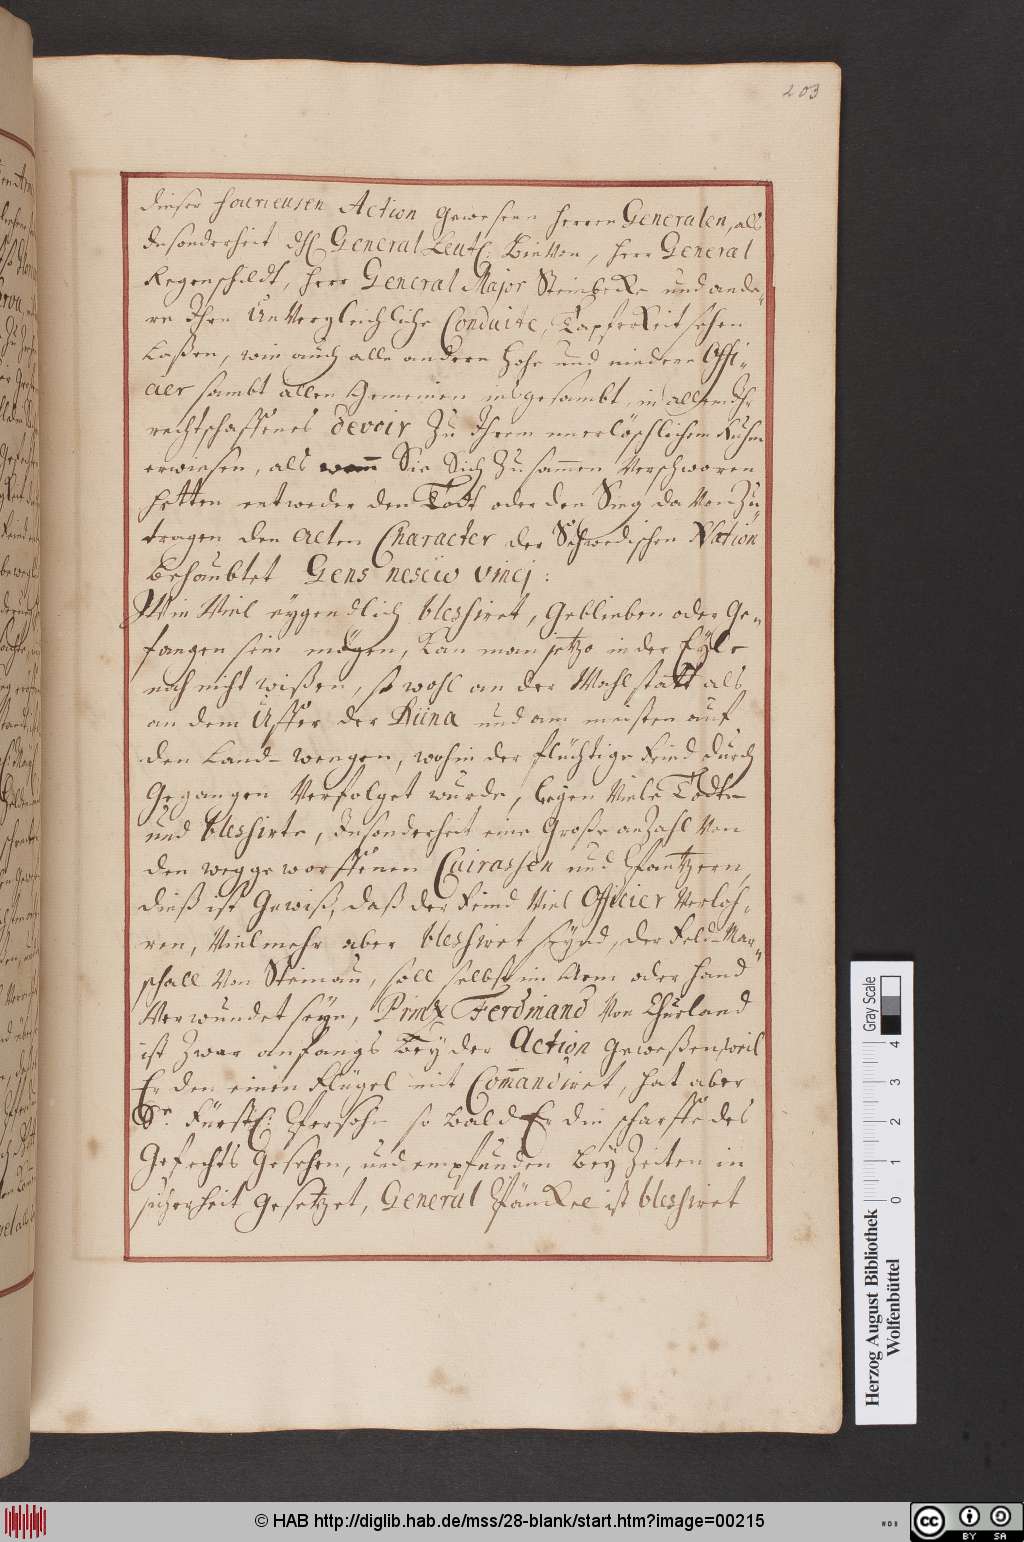 203
dieser fourieusen Action gewesenen Herren Generalen, als
besonderheit General Leut: Lieven, Herr General
Regenschildt, Herr General Major Steinbecke und ande-
re Ihre UnVergleichliche Conduite, TapferKeit sehen
Laßen, wie auch alle andere hohe und niedere Offi-
cier sambt allen Gemeinen insgesambt, in allem Ihr
rechtschaffenes devoir Zu Ihrem unerlöschlichem Ruhm
erwiesen, als wenn Sie Sich Zusammen Verschworen
hetten entweder den Todt oder den Sieg da Von Zu
tragen den alten Character der Schwedischen Nation
behaubtet Gens nescia vinci:
Wie Viel eygendlich blessiret, Geblieben oder Ge-
fangen sein mögen, Kan man jetzo in der Eyle
noch nicht wißen, so wohl an der Wahlstatt als
an dem Uffer der Düna und am meisten auf
den Land-weegen, wohin der flüchtige Feind durch
Gegangen Verfolget wurde, liegen Viele Todte
und blessirte, besonderheit eine Große anZahl Von
den weggeworffenen Cuirassen und
dieß ist Gewiß, daß der Feind Viel Officier Verloh-
ren, Vielmehr aber blessiret seynd, der Feld-Mar-
schall Von Steinau, soll selbst im Arm oder Hand
Verwundet seyn, Printz Ferdinand Von Churland
ist Zwar anfangs bey der Action geweßen, weil
Er den einen Flügel mit Comandiret, hat aber
Sr. Fürstl: Persohn so bald Er die scharffe des
Gefechts Gesehen, und empfunden bey Zeiten in
sicherheit Gesetzet, General Päickel ist blessiret
Gray Scale
0 1 2 3 4
Herzog August Bibliothek
Wolfenbüttel
© HAB http://diglib.hab.de/mss/28-blank/start.htm?image=00215
WDB
CC BY SA